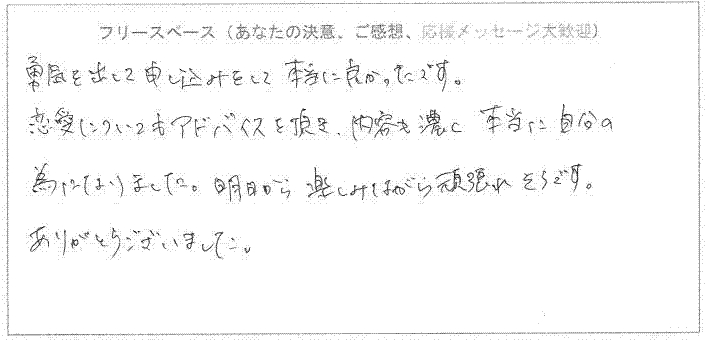 フリースペース（あなたの決意、ご感想、応援メッセージ大歓迎）
勇気を出して申し込みをして本当に良かったです。
恋愛についてもアドバイスを頂き、内容も濃く本当に自分の
為になりました。明日から楽しみながら頑張れそうです。
ありがとうございました。